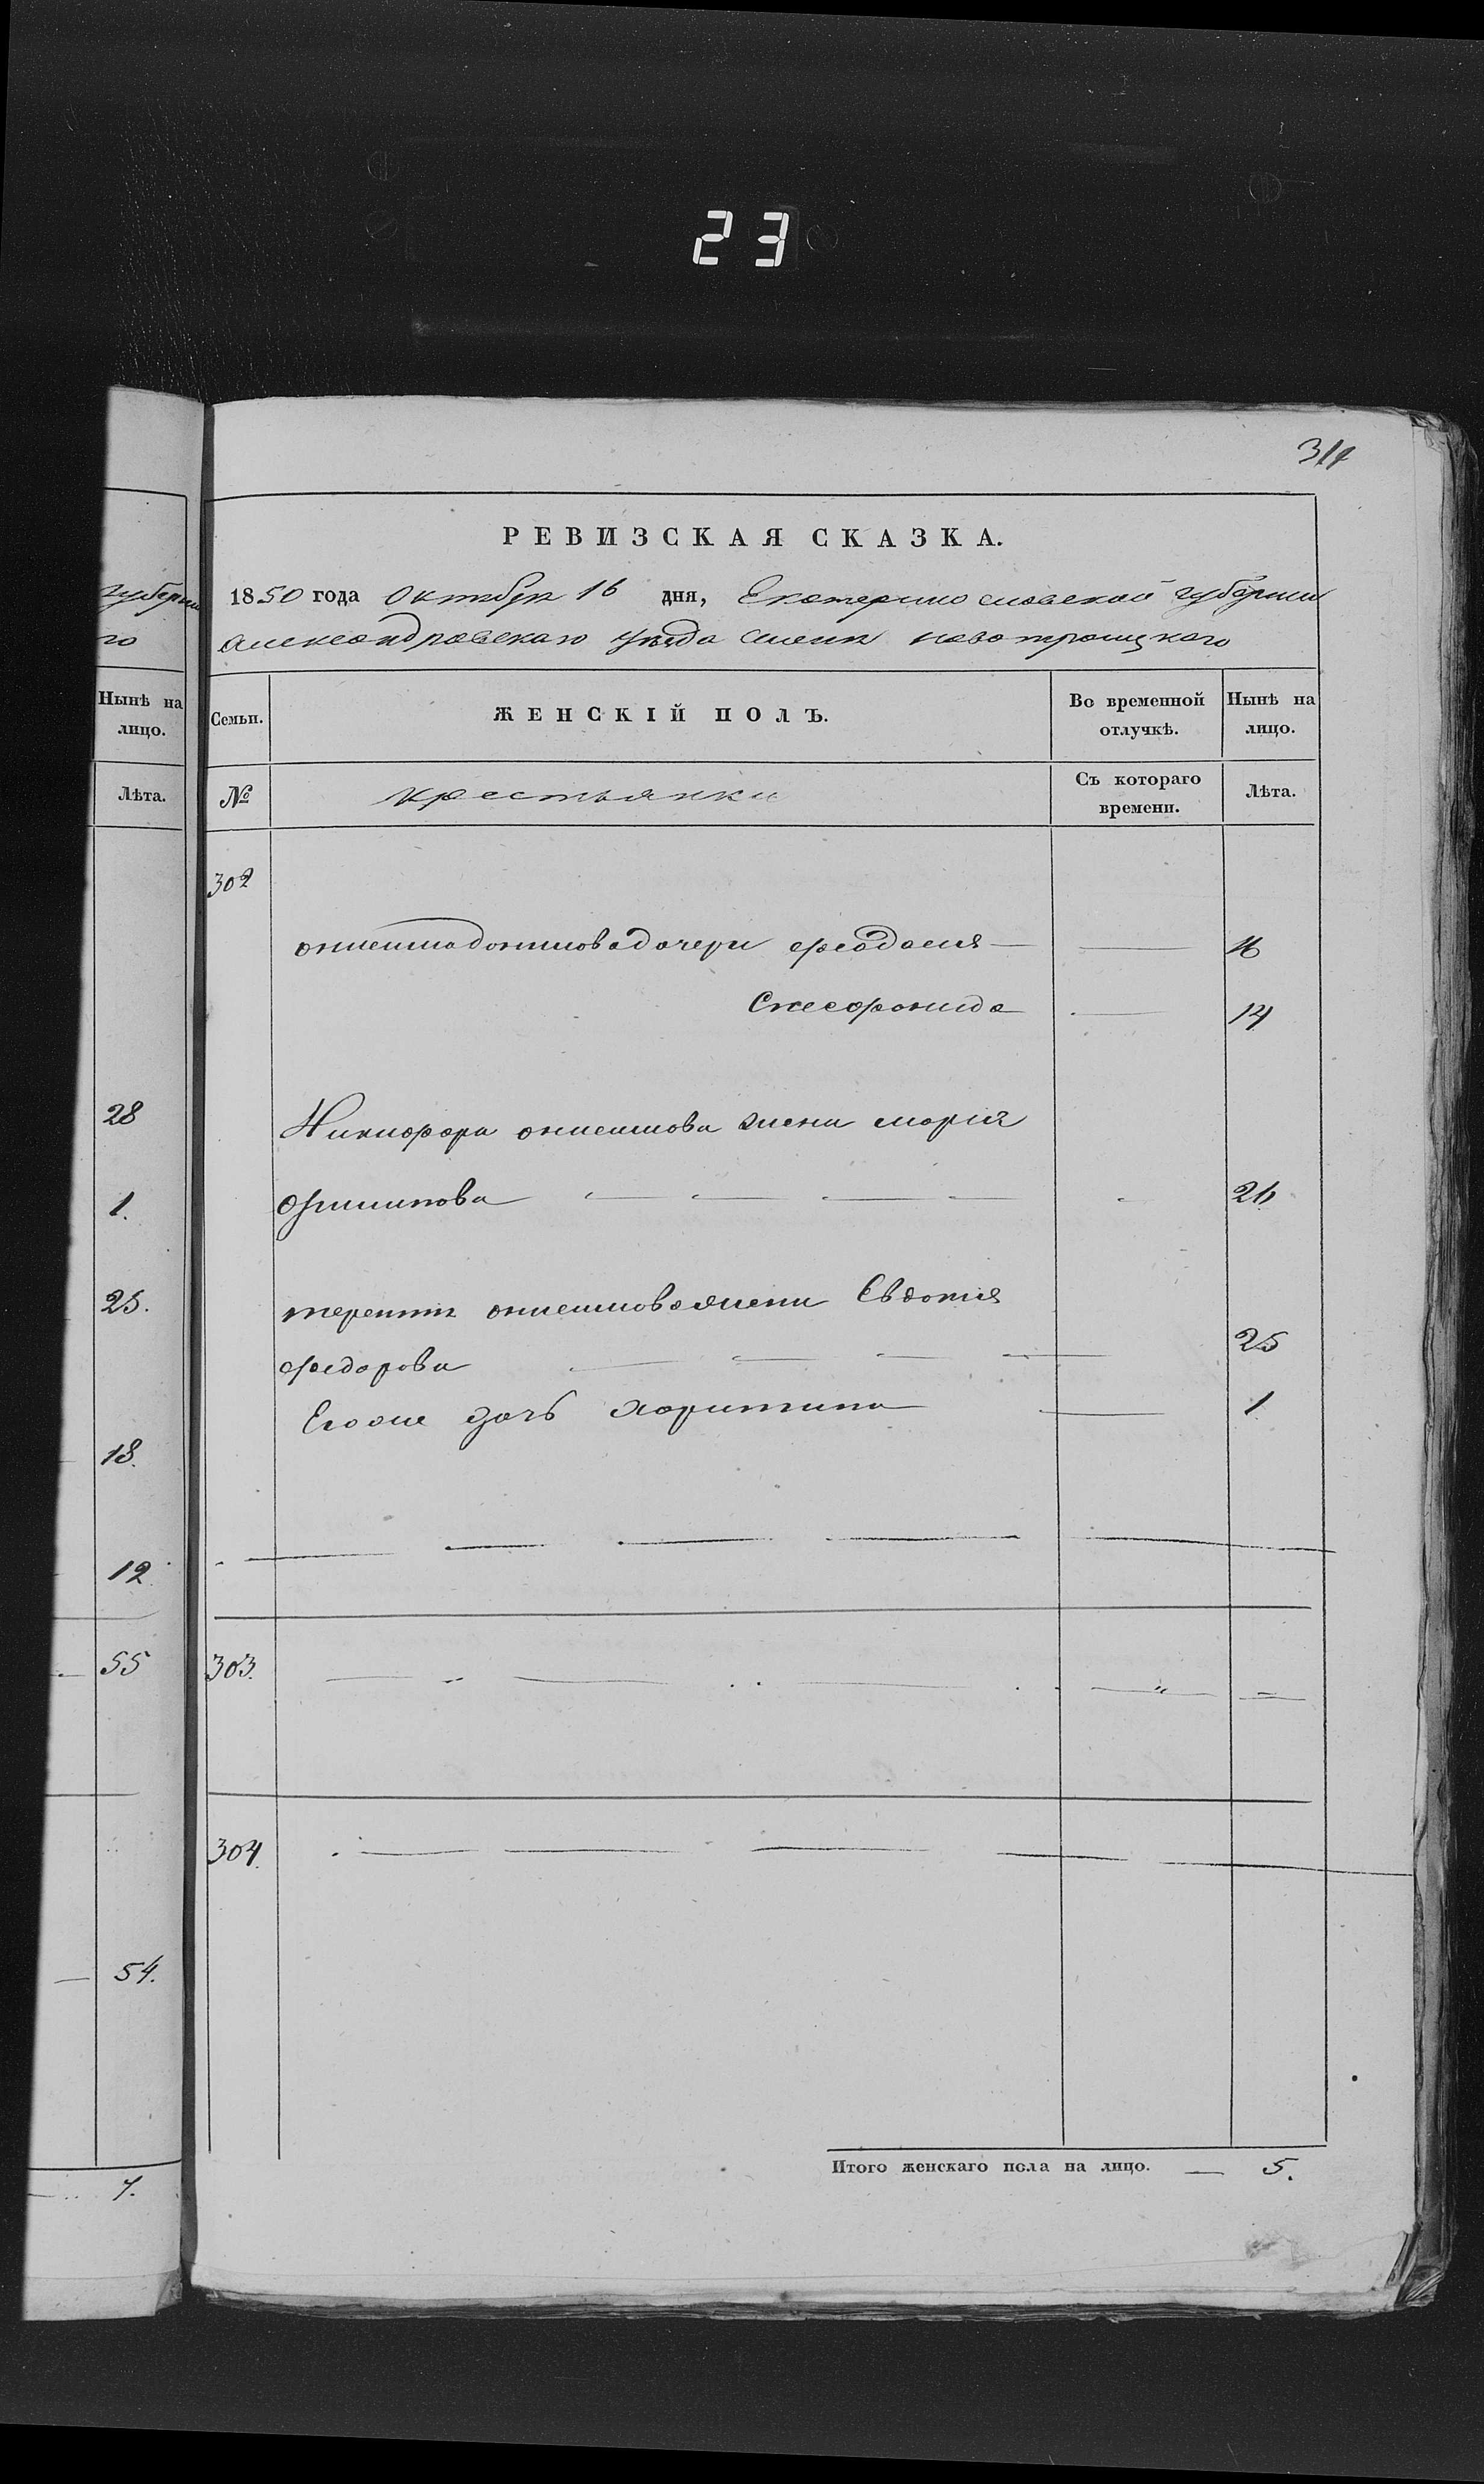 23
311
РЕВИЗСКАЯ СКАЗКА.
губерніи
1850 года Октября 16 дня, Екатеринославской губерніи
го
Александровскаго уѣзда селенія новотроицкаго
Нынѣ на лицо.
Семьи.
ЖЕНСКІЙ ПОЛЪ.
Во временной отлучкѣ.
Нынѣ на лицо.
Лѣта.
№
крестьянки
Съ котораго времени.
Лѣта.
302
дочери феодосия — 16
14
28
Никифора жена марія
1.
26
25.
терентія жена Евдокия
федорова 25
Егоже дочь харитина 1
18.
12
55
303.
304.
54.
7.
Итого женскаго пола на лицо. — 5.